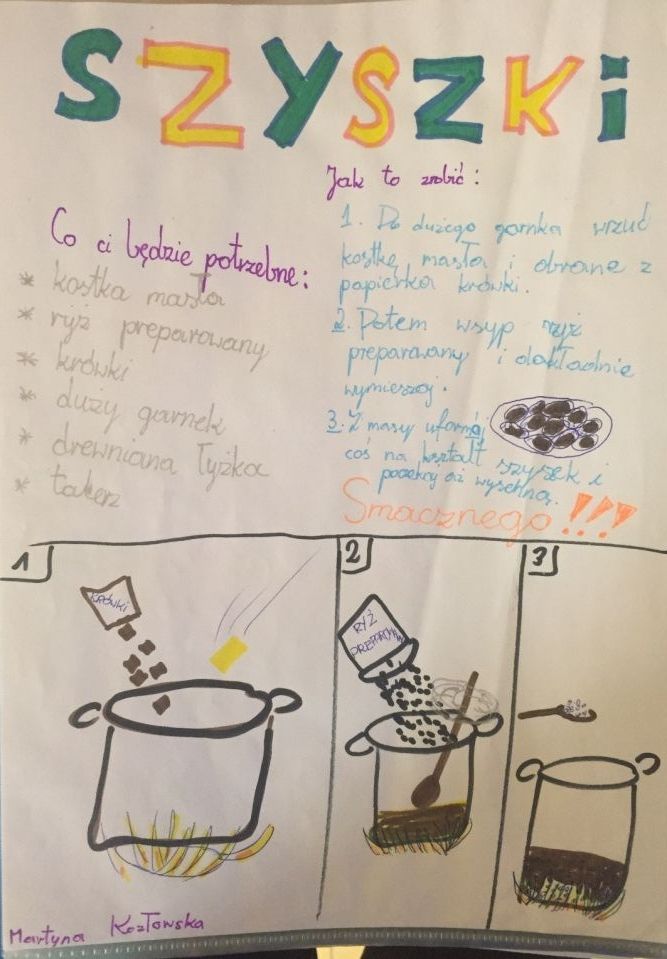 SZYSZKi
Co ci będzie potrzebne:
* kostka masła
* ryż preparowany
* krówki
* duży garnek
* drewniana łyżka
* talerz
Jak to zrobić:
1. Do dużego garnka wrzuć
kostkę masła i obrane z
papierka krówki.
2. Potem wsyp ryż
preparowany i dokładnie
wymieszaj.
3. Z masy uformuj
coś na kształt szyszek i
poczekaj aż wyschną.
Smacznego !!!
1
KRÓWKI
2
RYŻ
PREPAROWANY
3
Martyna Kozłowska